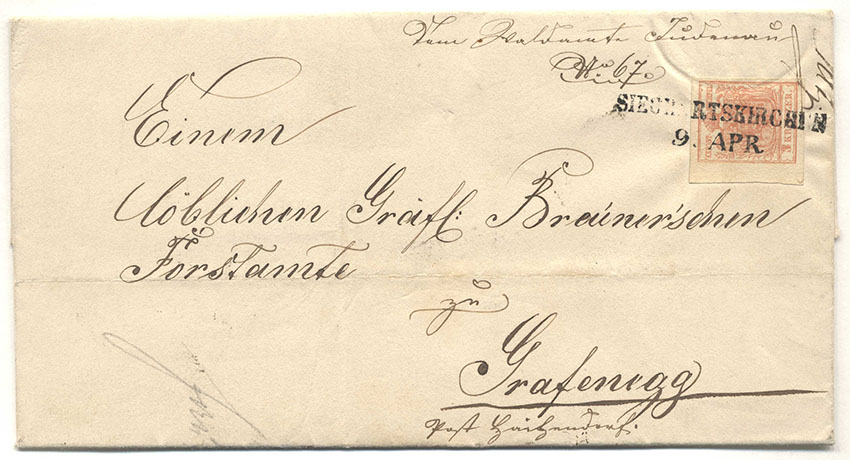 Vom Waldamte Judenau
No 67.
SIEGHARTSKIRCHEN
9. APR.
Einem
löblichen Gräfl: Breüner'schen
Forstamte
zu
Grafenegg
Post Haitzendorf.